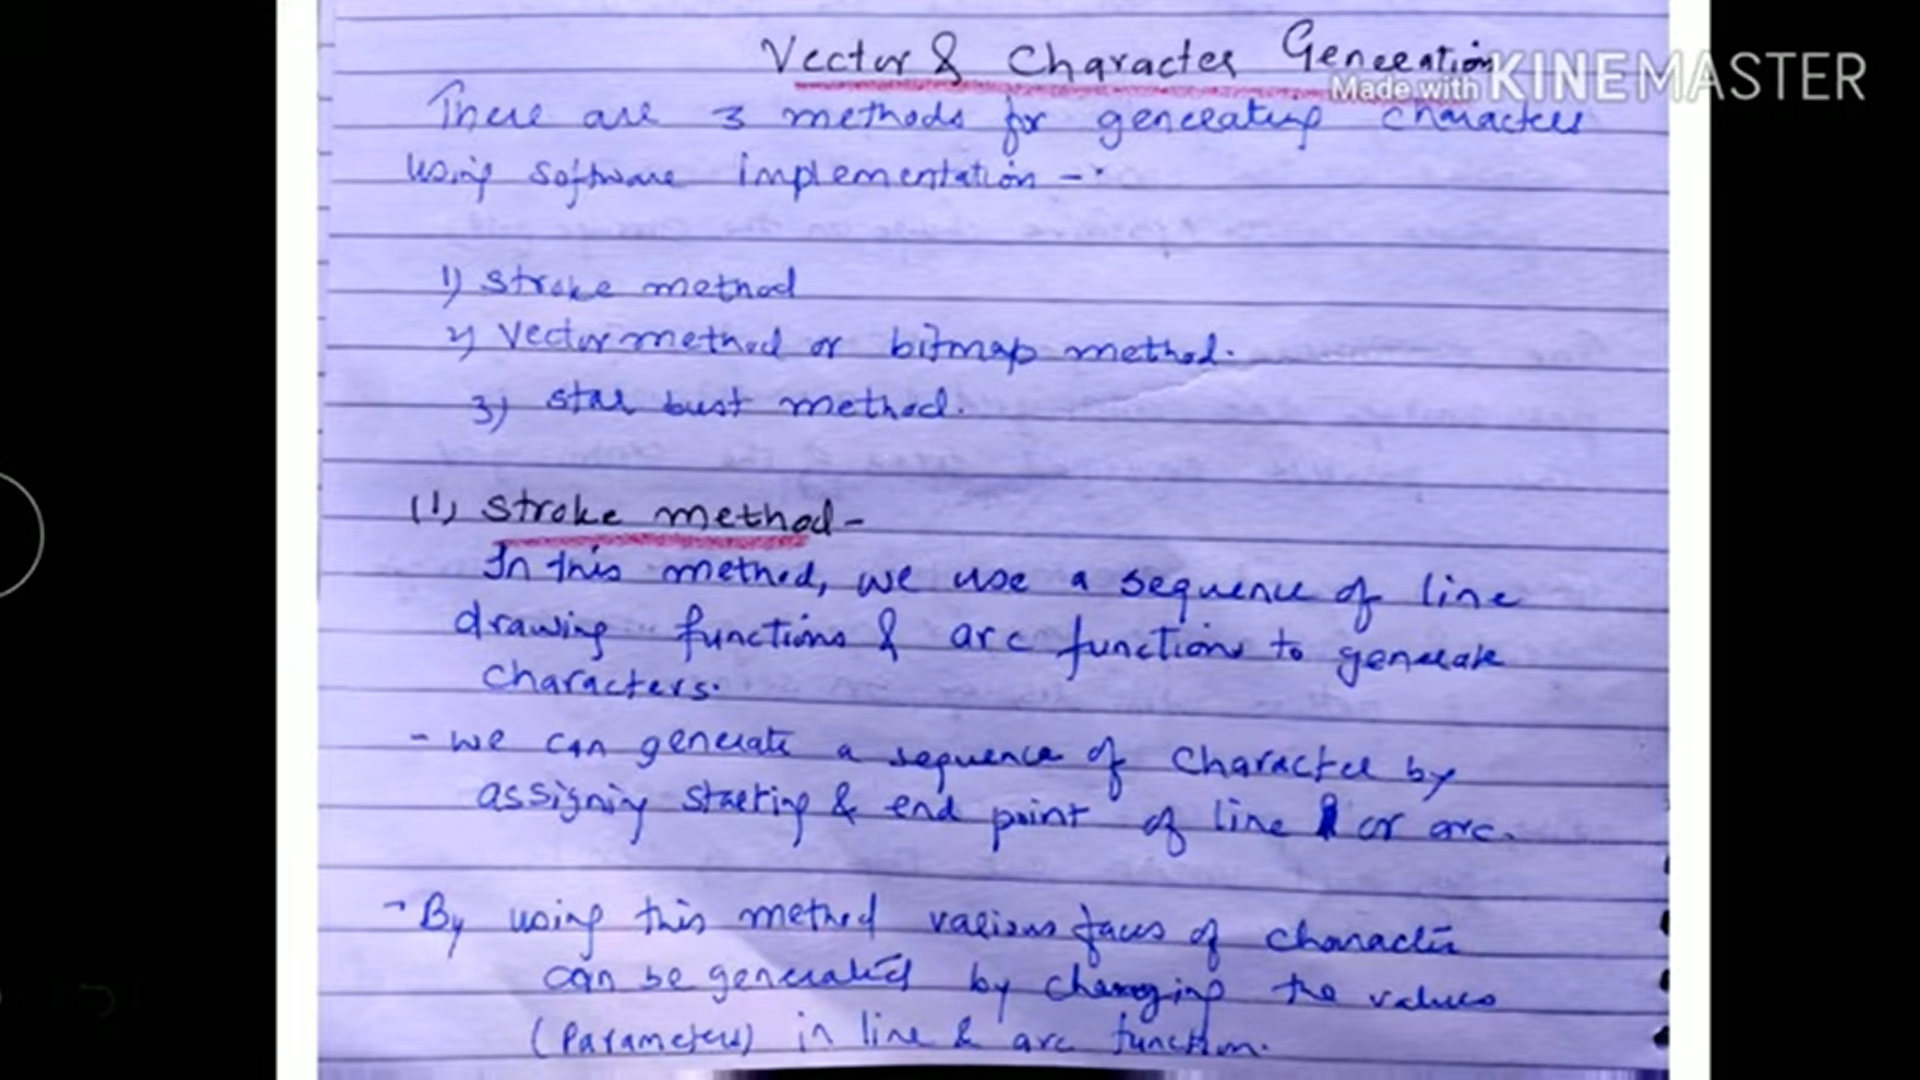 Vector & Character Generation
Made with KINEMASTER
There are 3 methods for generating character
using software implementation -:
1) stroke method
2) Vector method or bitmap method.
3) star bust method.
(1) Stroke method -
In this method, we use a sequence of line
drawing functions & arc functions to generate
characters.
- we can generate a sequence of character by
assigning starting & end point of line or arc.
- By using this method various faces of character
can be generated by changing the values
(Parameters) in line & arc function.